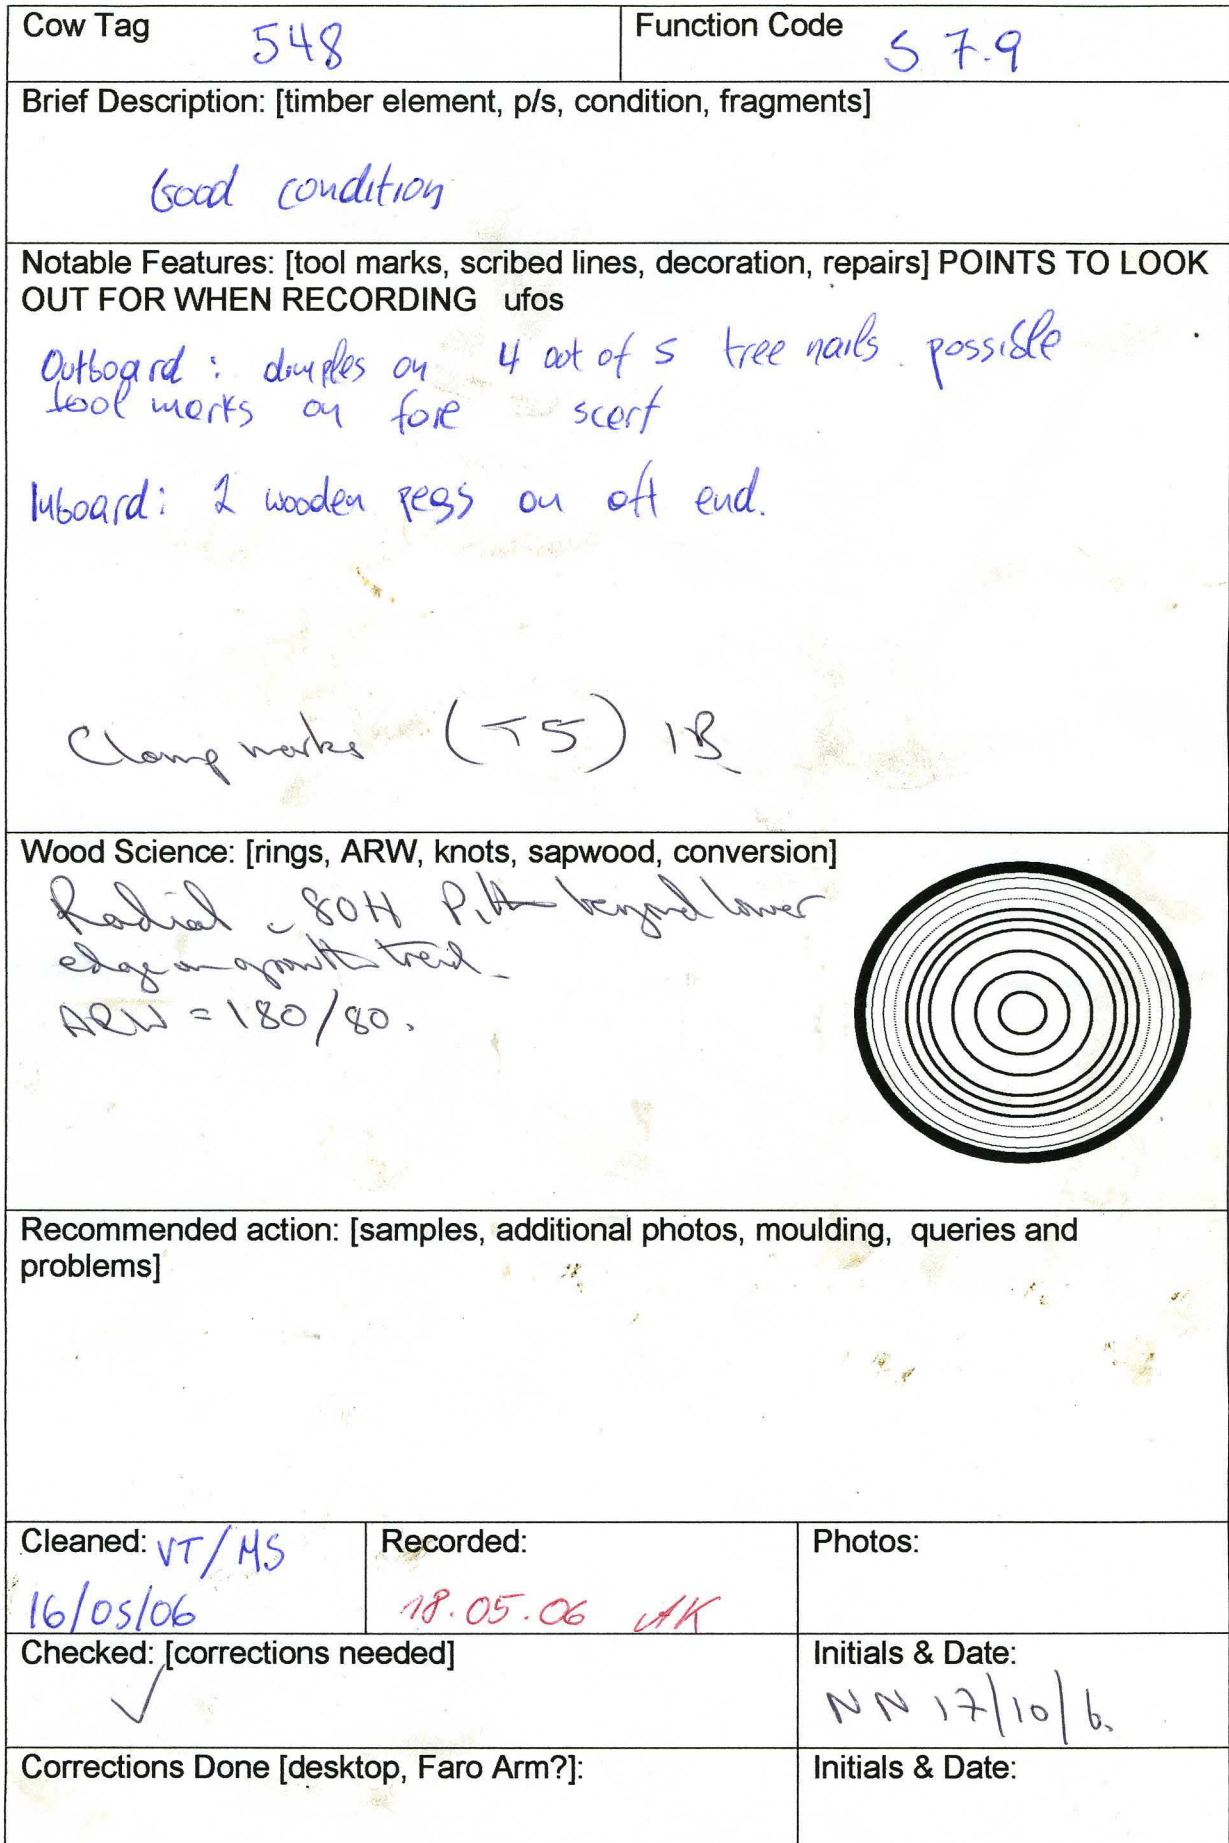 Cow Tag 548 Function Code S 7.9
Brief Description: [timber element, p/s, condition, fragments]
Good condition
Notable Features: [tool marks, scribed lines, decoration, repairs] POINTS TO LOOK
OUT FOR WHEN RECORDING ufos
Outboard: dimples on 4 out of 5 tree nails. possible
tool marks on fore scarf
Inboard: 2 wooden pegs on aft end.
Clamp marks ( 5) IB
Wood Science: [rings, ARW, knots, sapwood, conversion]
Radial 80H Pith beyond lower
edge on growth trend.
ARW = 180/80.
Recommended action: [samples, additional photos, moulding, queries and
problems]
Cleaned: VT/MS Recorded: Photos:
16/05/06 18.05.06 AK
Checked: [corrections needed] Initials & Date:
✓ NN 17/10/6.
Corrections Done [desktop, Faro Arm?]: Initials & Date: